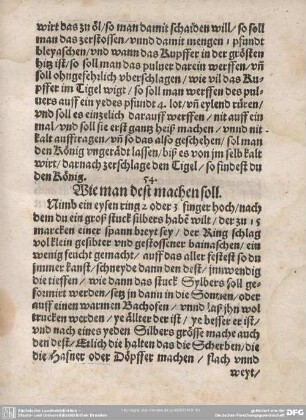 wirt das zu öl/ so man damit schaiden will/ so soll
man das zerstossen/ vnnd damit mengen 1 pfundt
bleyaschen/ vnd wann das Kupffer in der grösten
hitz ist/ so soll man das puluer darein werffen/ vñ
soll ohngefehrlich vberschlagen/ wie vil das Ku-
pffer im Tigel wigt/ so soll man werffen des pul-
uers auff ein yedes pfundt 4. lot/ vñ eylend rüren/
vnd soll es eintzelich darauff werffen/ nit auff ein
mal/ vnd soll sie erst gantz heiß machen/ vnnd nit
kalt aufftragen/ vñ so das also geschehen/ sol man
den König vngerädt lassen/ biß es von jm selb kalt
wirt/ darnach zerschlage den Tigel/ so findest du
den König. 54.
Wie man dest machen soll.
Nimb ein eysen ring 2 oder 3 finger hoch/ nach
dem du ein groß stuck silbers habē wilt/ der zu 15
marcken einer spann breyt sey/ der Ring schlag
vol klein gesibter vnd gestossener bainaschen/ ein
wenig feucht gemacht/ auff das aller festest so du
jmmer kanst/ schneyde dann den dest/ jnnwendig
die tieffen/ wie dann das stuck Sylbers soll ge-
formirt werden/ setz in dann in die Sonnen/ oder
auff einen warmen Bachofen/ vnnd laß jhn wol
trucken werden/ ye älter der ist/ ye besser er ist/
vnd nach eines yeden Silbers grösse mache auch
den dest/ Etlich die halten das die Scherben/ die
die Hafner oder Döpffer machen/ flach vnnd
weyt/
Sächsische Landesbibliothek -
Staats- und Universitätsbibliothek Dresden
gefördert von der
Deutschen Forschungsgemeinschaft
DFG